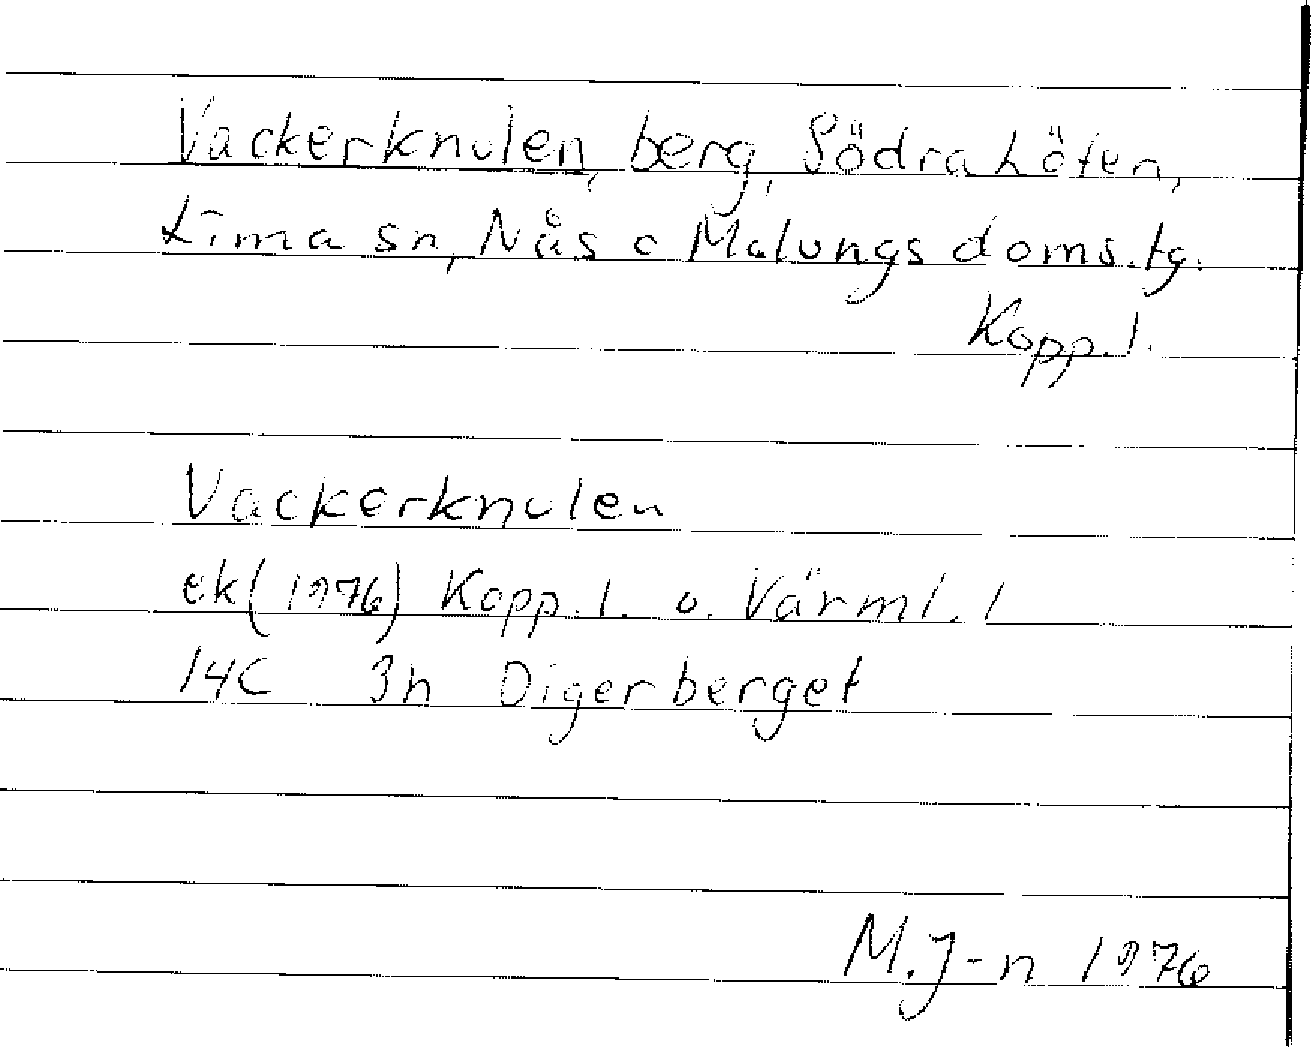 Vackerknulen, berg, Södra Löten,
Lima sn, Nås o Malungs doms.tg.
Kopp.l.
Vackerknulen
ek (1976) Kopp.l. o. Värml. l
14C 3h Digerberget
M.J-n 1976